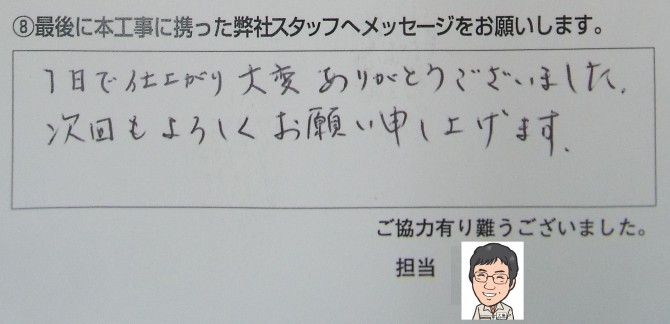 ⑧最後に本工事に携った弊社スタッフへメッセージをお願いします。
1日で仕上がり大変ありがとうございました。
次回もよろしくお願い申し上げます。
ご協力有り難うございました。
担当